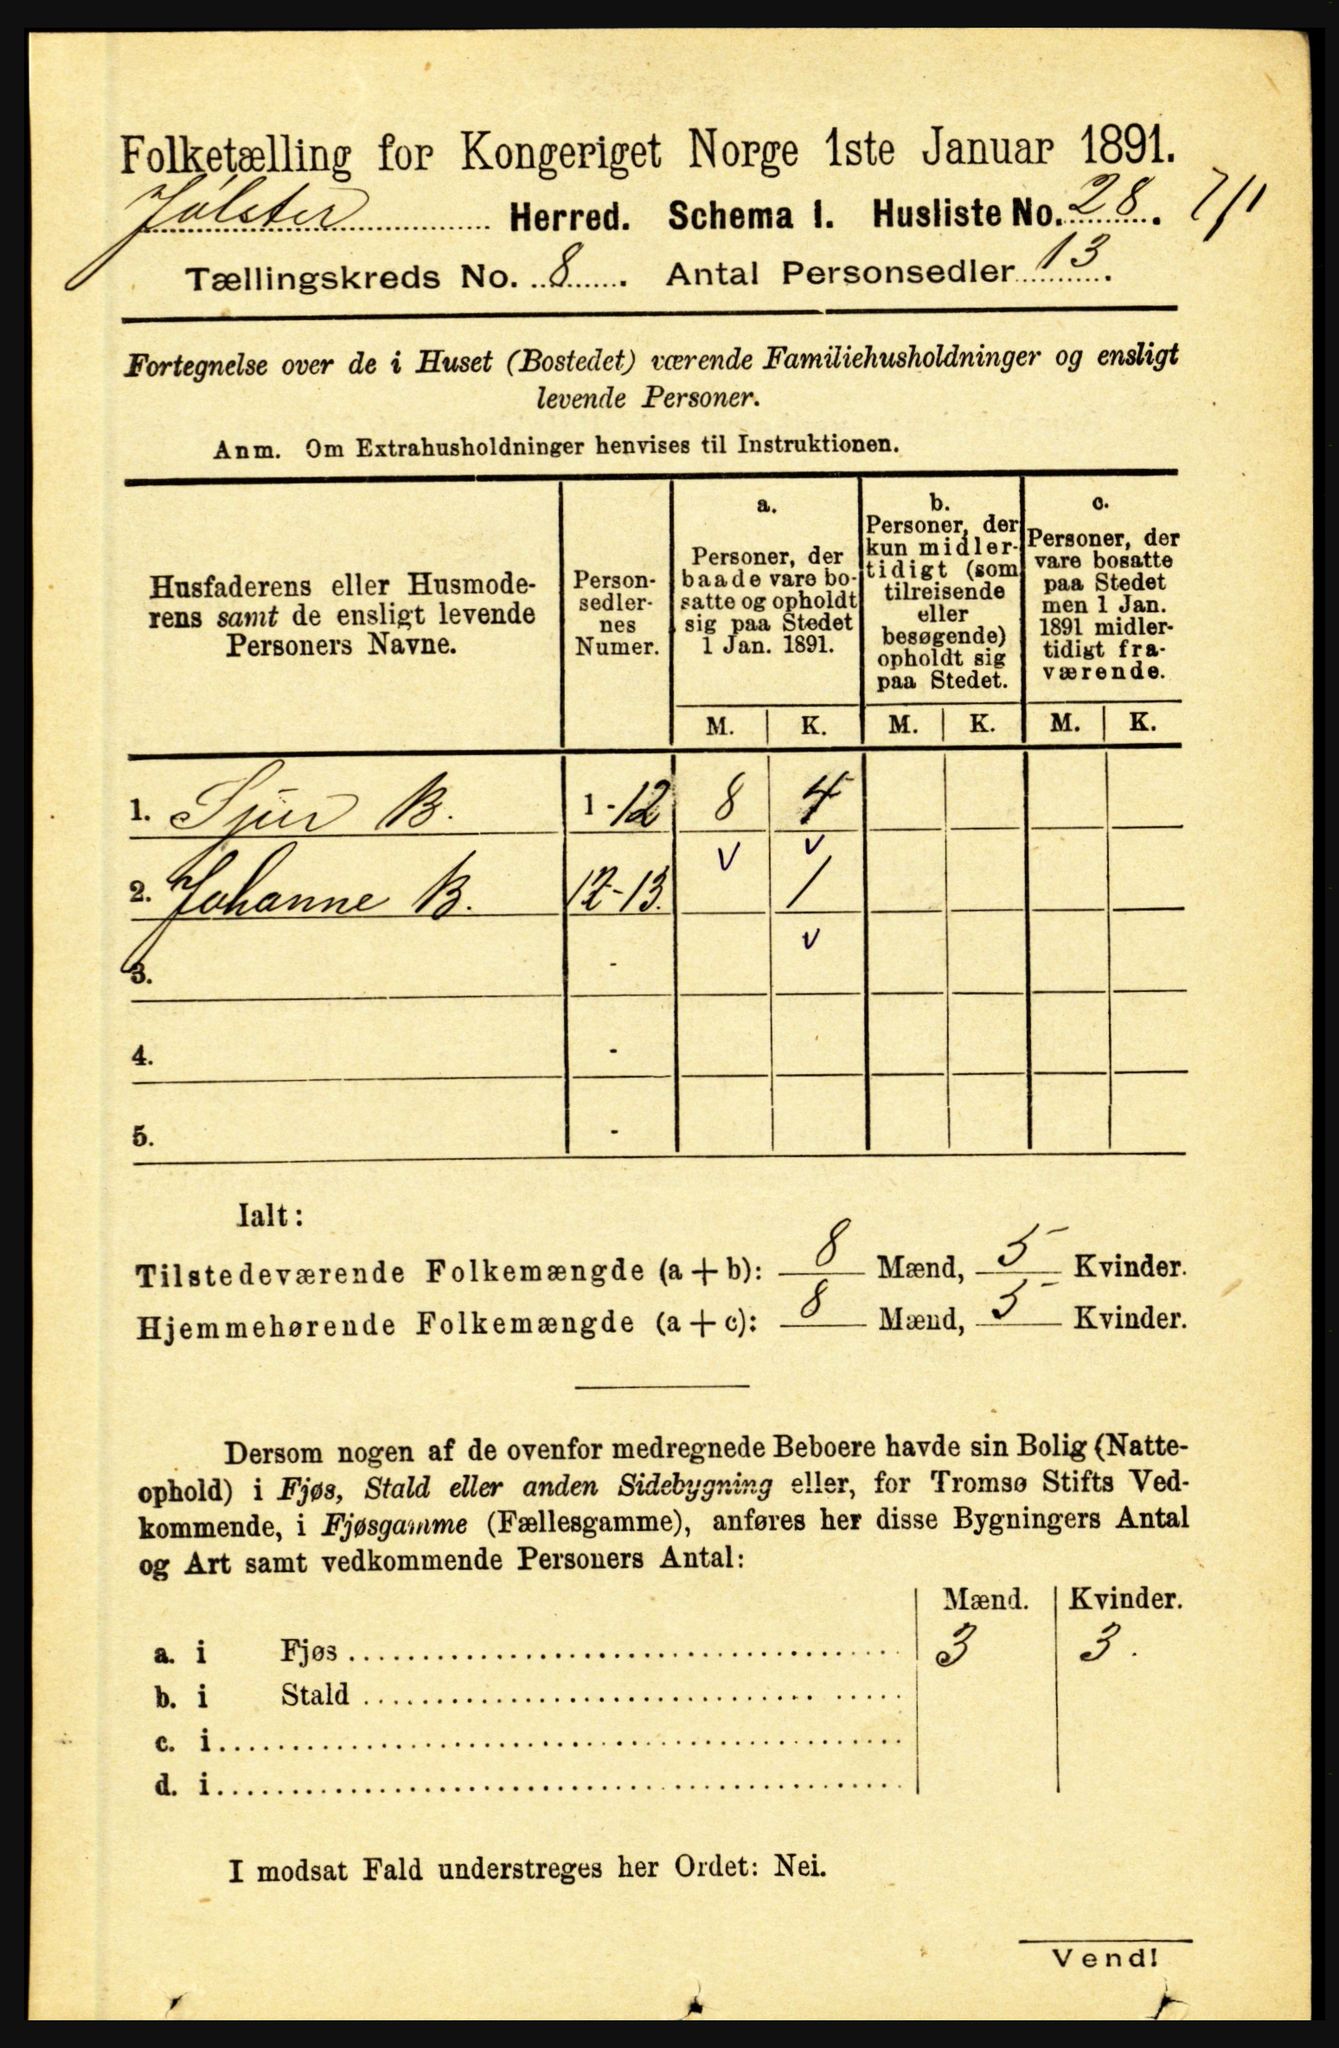 Folketælling for Kongeriget Norge 1ste Januar 1891.
Jølster Herred. Schema 1. Husliste No. 28. 7/1
Tællingskreds No. 8. Antal Personsedler 13.
Fortegnelse over de i Huset (Bostedet) værende Familiehusholdninger og ensligt
levende Personer.
Anm. Om Extrahusholdninger henvises til Instruktionen.
Husfaderens eller Husmode-
rens samt de ensligt levende
Personers Navne.
Person-
sedler-
nes
Numer.
a.
Personer, der
baade vare bo-
satte og opholdt
sig paa Stedet
1 Jan. 1891.
b.
Personer, der
kun midler-
tidigt (som
tilreisende
eller
besøgende)
opholdt sig
paa Stedet.
c.
Personer, der
vare bosatte
paa Stedet
men 1 Jan.
1891 midler-
tidigt fra-
værende.
M. K. M. K. M. K.
1. Sjur B. 1-12 8 4
v v
2. Johanne B. 12-13. 1
v
3. -
4. -
5. -
Ialt:
Tilstedeværende Folkemængde (a + b): 8 Mænd, 5 Kvinder.
Hjemmehørende Folkemængde (a + c): 8 Mænd, 5 Kvinder.
Dersom nogen af de ovenfor medregnede Beboere havde sin Bolig (Natte-
ophold) i Fjøs, Stald eller anden Sidebygning eller, for Tromsø Stifts Ved-
kommende, i Fjøsgamme (Fællesgamme), anføres her disse Bygningers Antal
og Art samt vedkommende Personers Antal:
Mænd. Kvinder.
a. i Fjøs 3 3.
b. i Stald
c. i
d. i
I modsat Fald understreges her Ordet: Nei.
Vend!